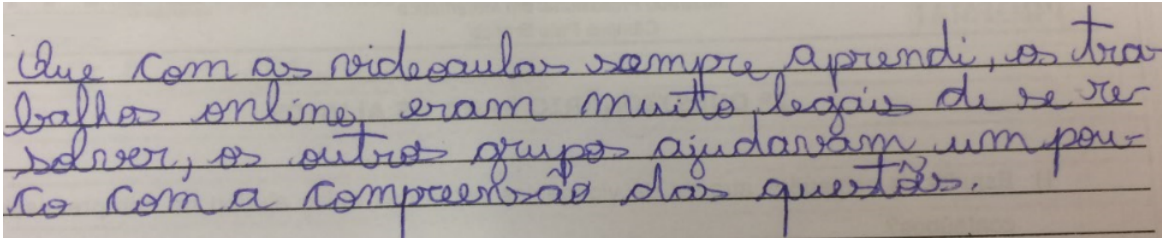 Que com as videoaulas sempre aprendi, os tra-
balhos online eram muito legais de se re-
solver, os outros grupos ajudavam um pou-
co com a compreensão das questões.